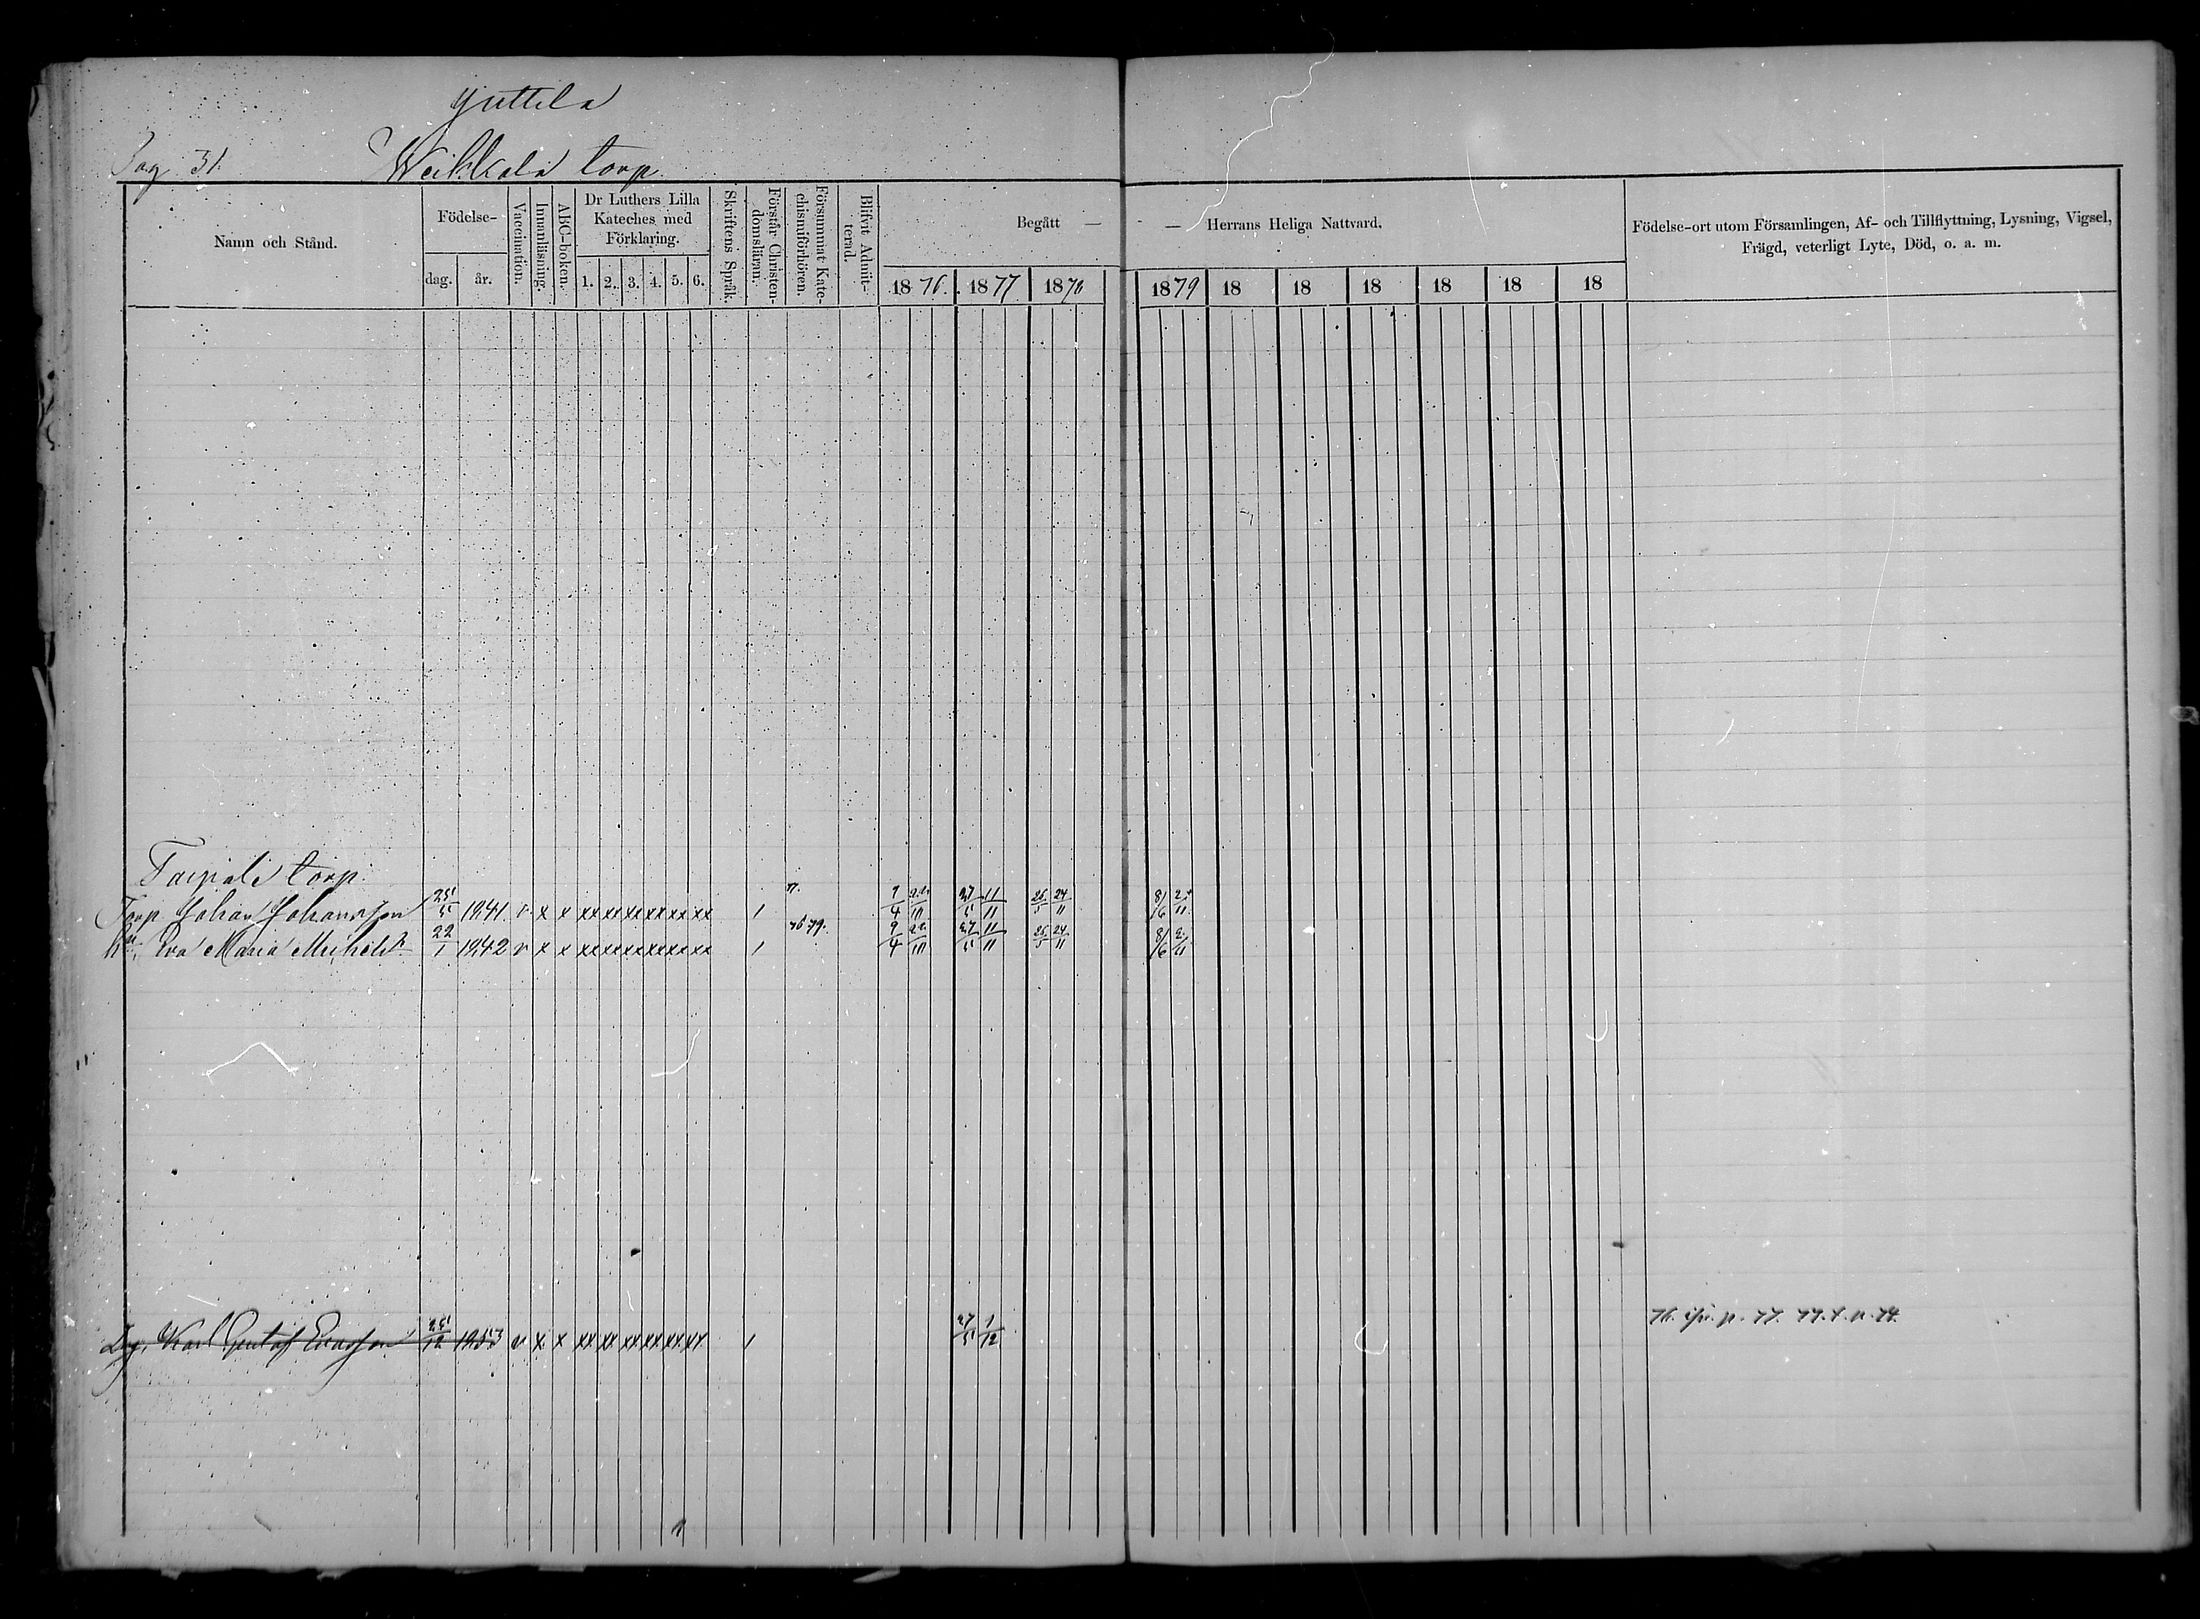 Juttila
Pag 31. Weikkola torp
Namn och Stånd.
Födelse-
dag. år.
Vaccination.
Innanläsning.
ABC-boken.
Dr Luthers Lilla
Kateches med
Förklaring.
1. 2. 3. 4. 5. 6.
Skriftens Språk.
Förstår Christen-
domsläran.
Försummat Kate-
chismiförhören.
Blifvit Admit-
terad.
Begått —
— Herrans Heliga Nattvard.
1876. 1877 1878 1879 18 18 18 18 18 18
Födelse-ort utom Församlingen, Af- och Tillflyttning, Lysning, Vigsel,
Frägd, veterligt Lyte, Död, o. a. m.
Taipale torp.
Torp Johan Johansson 25/5 1841 v x x xx xx xx xx xx xx 1 9/4 27/5 11/11 26/5 24/11 8/6
Eva Maria 22/1 1842 v x x xx xx xx xx xx xx 1 76 79. 9/4 27/5 11/11 26/5 24/11 8/6
Karl Gustaf 25/12 1853 v x x xx xx xx xx xx xx 1 27/5 1/12